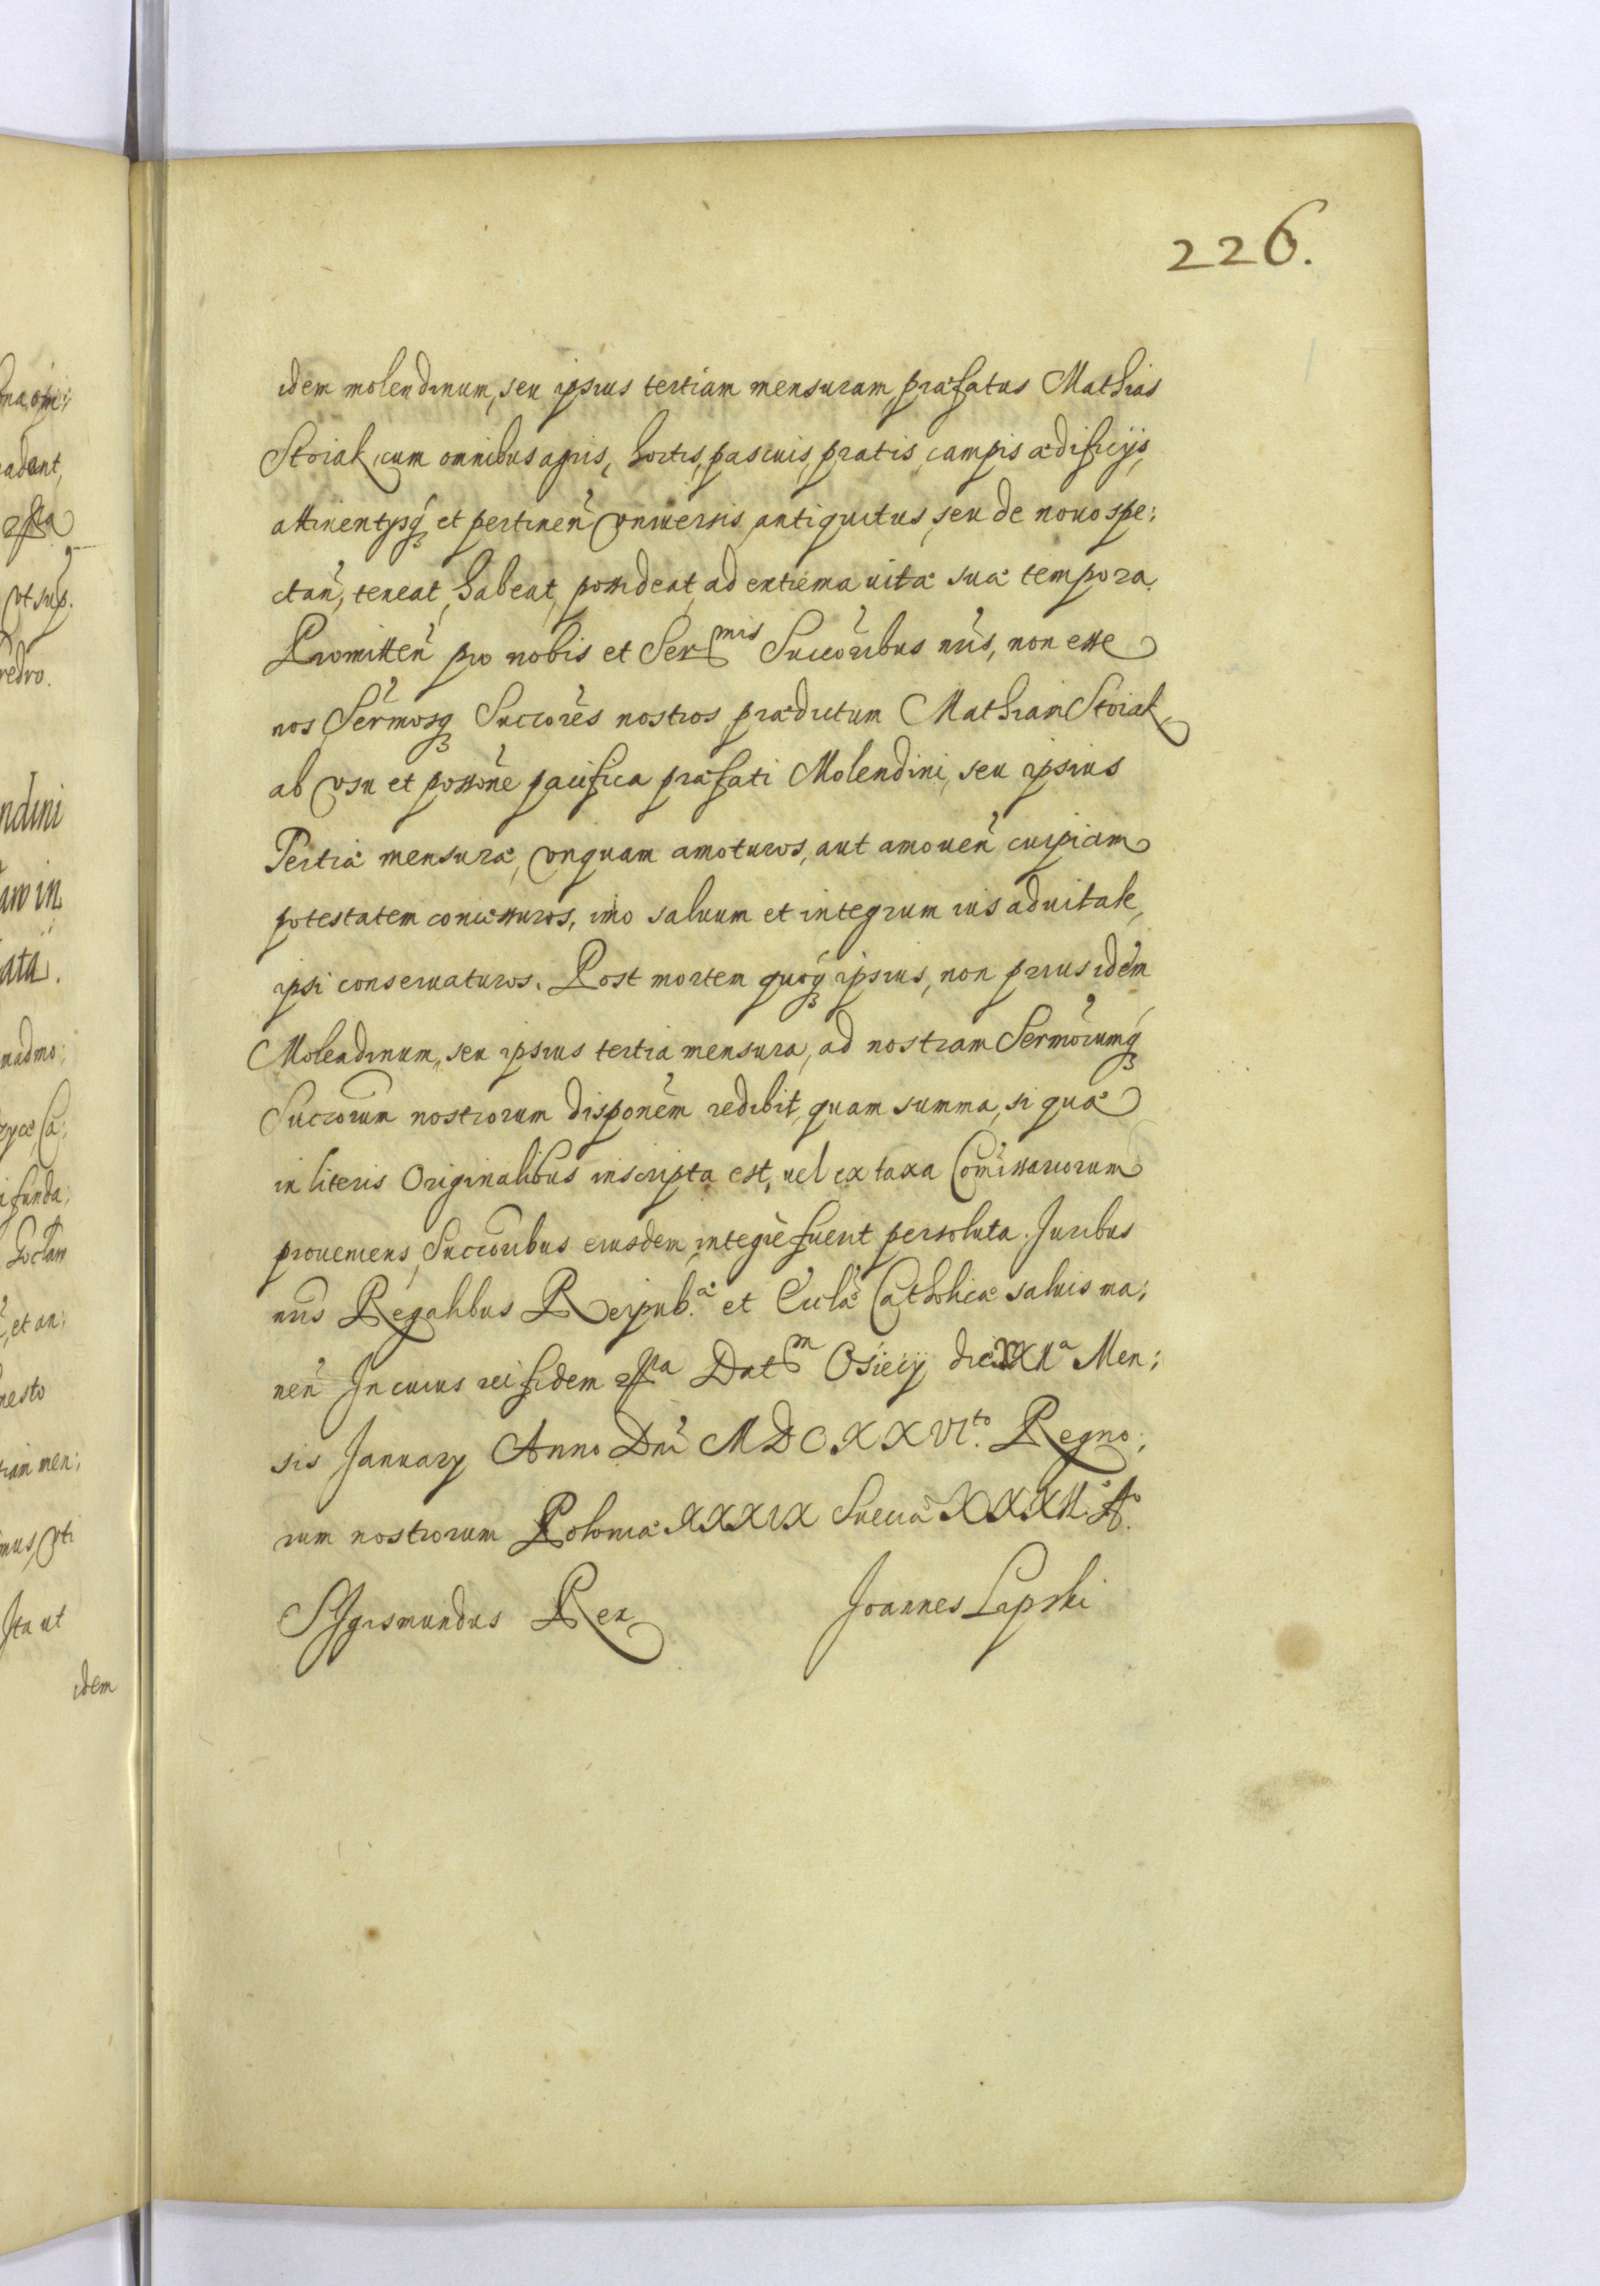 226.
idem molendinum, seu ipsius tertiam mensuram, præfatus Mathias
Stoiak, cum omnibus agris, hortis, pascuis, pratis, campis ædificijs,
attinentijsq; et pertineñ vniuersis, antiquitus, seu de nouo spe:
ctañ, teneat, habeat, possideat, ad extrema uitæ suæ tempora.
Promitteñ pro nobis et Ser^mis Succõribus nr̃is, non esse
nos Serm̃osq; Succorẽs nostros prædictum Mathiam Stoiak
ab vsu et possoñe pacifica præfati Molendini, seu ipsius
Tertiæ mensuræ, vnquam amoturos, aut amoueñ cuipiam
potestatem concessuros, imo saluum et integrum ius aduitale,
ipsi conseruaturos. Post mortem quoq; ipsius, non prius idem
Molendinum, seu ipsius tertia mensura, ad nostram Serm̃orumq;
Succorum nostrorum disponẽm redibit, quam summa, si quæ
in literis Originalibus inscripta est, uel ex taxa Com̃issariorum
proueniens, Succoribus eiusdem, integrè fuerit persoluta. Juribus
nr̃is Regalibus Reipub.^æ et Eccl̃æ Catholicæ saluis ma:
neñ Jn cuius rei fidem Datt^m Osiecij die Men:
sis January Anno Dnĩ MDCXXVI^to. Regno:
rum nostrorum Poloniæ XXXIX Sueciæ XXXII. A^o.
Sigismundus Rex Joannes Lipski
ndini
nesto
Jta ut
idem